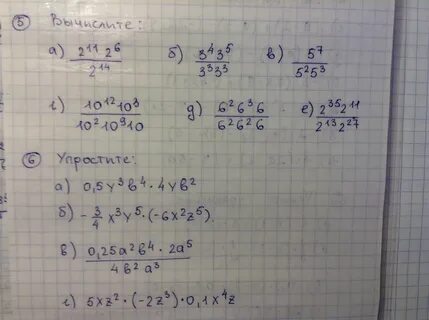 ⑤ Вычислите:
а) 2¹¹ 2⁶ / 2¹⁴ б) 3⁴3⁵ / 3³3³ в) 5⁷ / 5²5³
г) 10¹²10³ / 10²10⁹10 д) 6²6³6 / 6²6²6 е) 2³⁵2¹¹ / 2¹³2²⁷
⑥ Упростите:
а) 0,5y³b⁴ · 4yb²
б) -3/4 x³y⁵ · (-6x²z⁵)
в) 0,25a²b⁴ · 2a⁵ / 4b²a³
г) 5xz² · (-2z³) · 0,1x⁴z